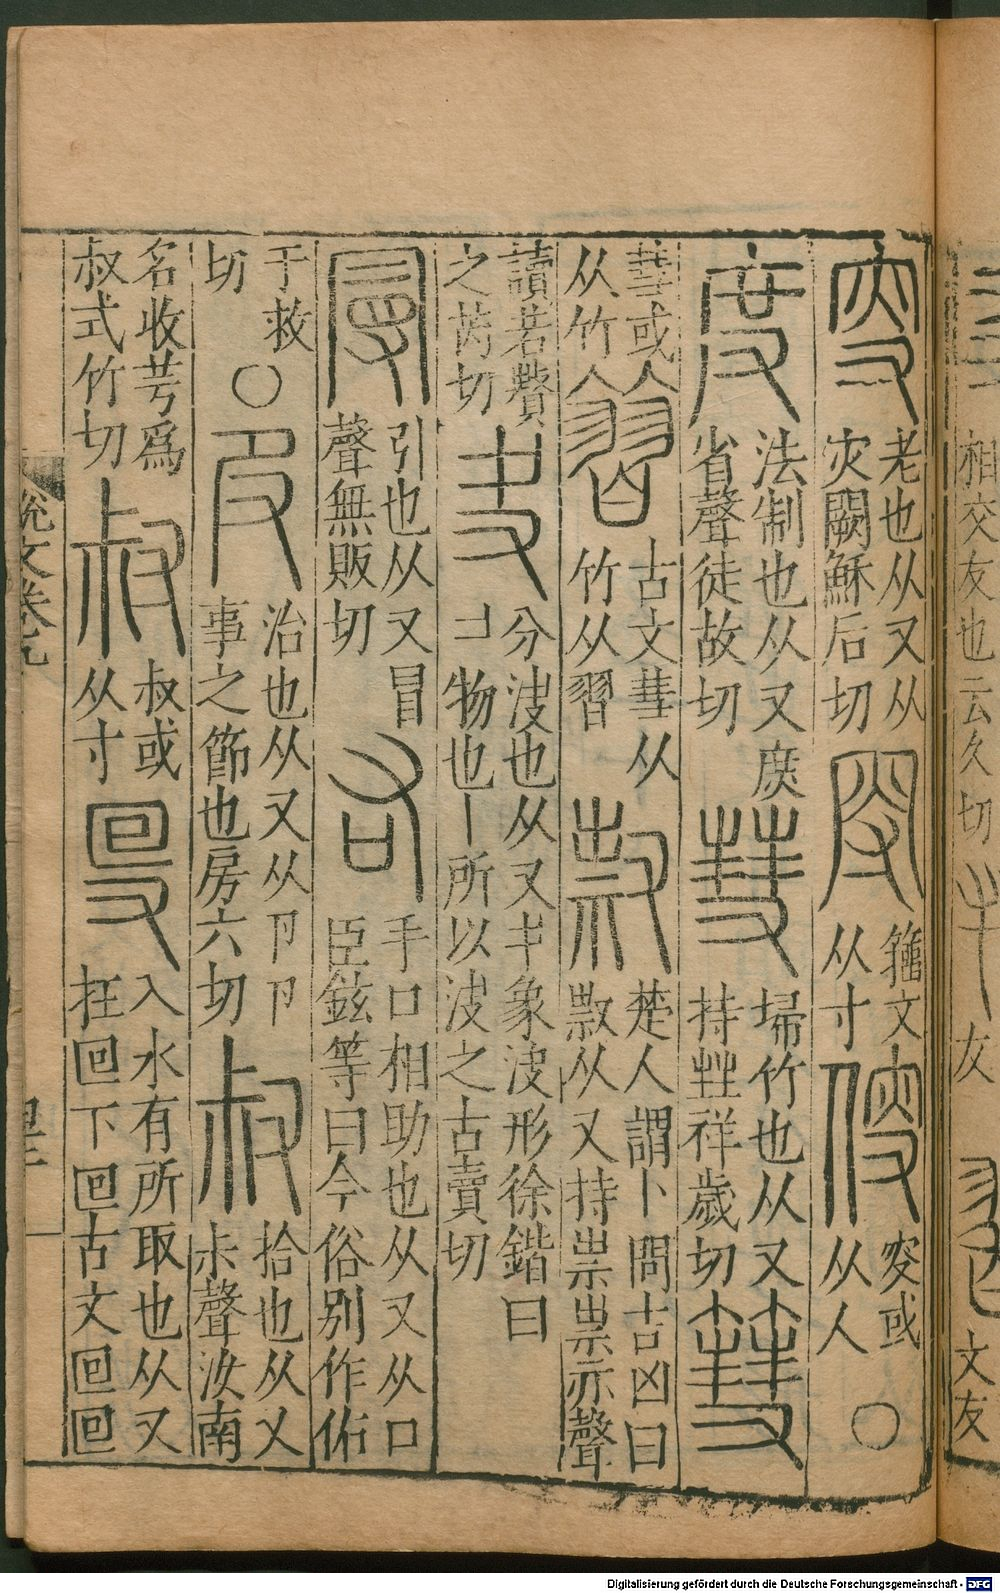 相交友也云久切
叜老也从又从灾闕穌后切𡬦籀文从寸傁叜或从人○
度法制也从又庶省聲徒故切彗埽竹也从又持甡祥歲切篲
彗或从竹𥱵古文彗从竹从習𣜩楚人謂卜問吉凶曰𣜩从又持祟祟亦聲
讀若贅之芮切夬分決也从又𠂇象決形徐鍇曰コ物也丨所以決之古賣切
曼引也从又冒聲無販切右手口相助也从又从口臣鉉等曰今俗別作佑
于救切○𠬝治也从又从卩卩事之節也房六切叔拾也从又尗聲汝南
名收芌爲叔式竹切𡬧叔或从寸𠬸入水有所取也从又在囘下囘古文回回